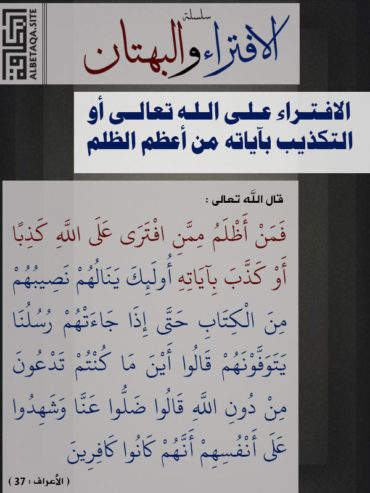 البطاقة
ALBETAQA.SITE
سلسلة
الافتراء والبهتان
الافتراء على الله تعالى أو
التكذيب بآياته من أعظم الظلم
قال الله تعالى :
فَمَنْ أَظْلَمُ مِمَّنِ افْتَرَى عَلَى اللَّهِ كَذِبًا
أَوْ كَذَّبَ بِآيَاتِهِ أُولَئِكَ يَنَالُهُمْ نَصِيبُهُمْ
مِنَ الْكِتَابِ حَتَّى إِذَا جَاءَتْهُمْ رُسُلُنَا
يَتَوَفَّوْنَهُمْ قَالُوا أَيْنَ مَا كُنْتُمْ تَدْعُونَ
مِنْ دُونِ اللَّهِ قَالُوا ضَلُّوا عَنَّا وَشَهِدُوا
عَلَى أَنْفُسِهِمْ أَنَّهُمْ كَانُوا كَافِرِينَ
( الأعراف : 37 )